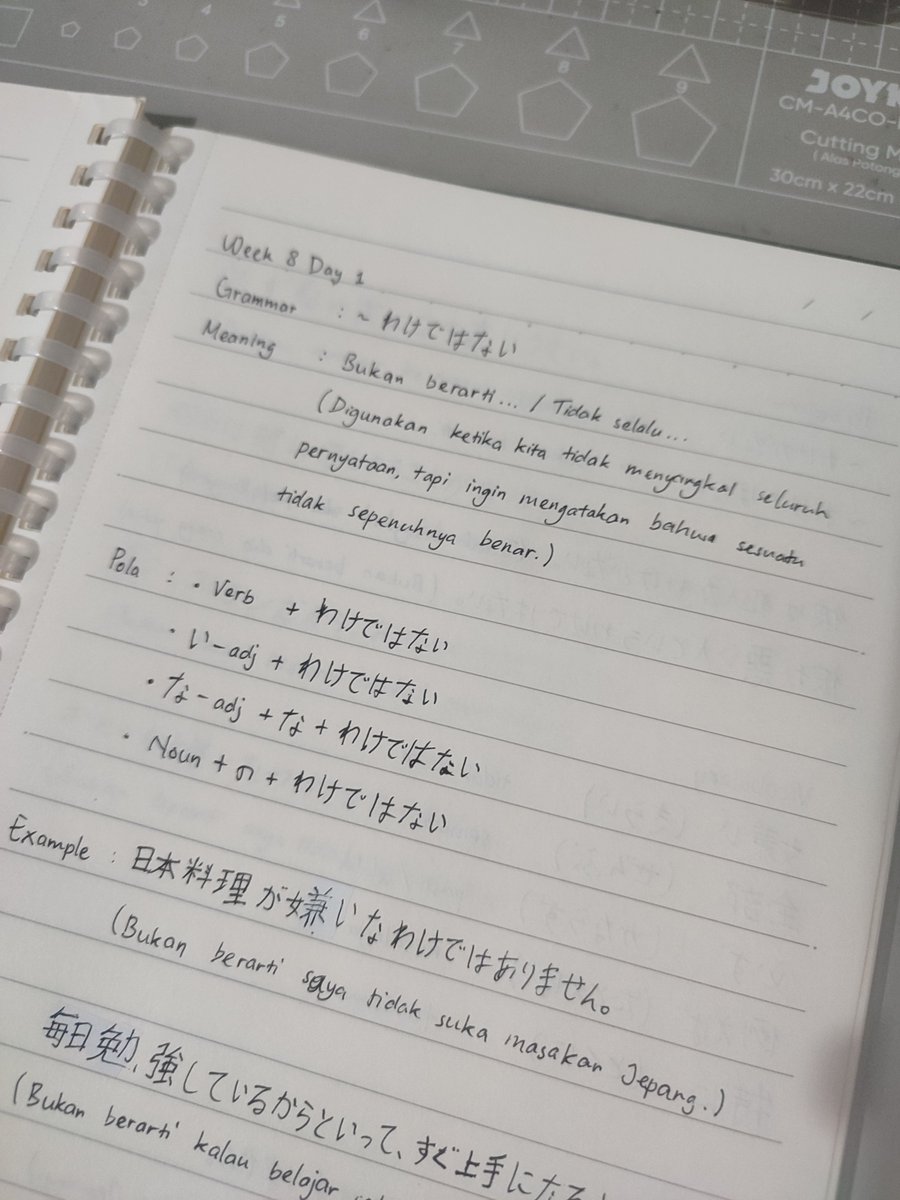 4
5
6
7
8
9
CM-A4CO-
Cutting
30cm x 22cm
Week 8 Day 1
Grammar : ~ わけではない
Meaning : Bukan berarti... / Tidak selalu...
(Digunakan ketika kita tidak menyangkal seluruh
pernyataan, tapi ingin mengatakan bahwa sesuatu
tidak sepenuhnya benar.)
Pola : • Verb + わけではない
• い-adj + わけではない
• な-adj + な + わけではない
• Noun + の + わけではない
Example : 日本料理が嫌いなわけではありません。
(Bukan berarti saya tidak suka masakan Jepang.)
毎日勉強しているからといって、すぐ上手になる
(Bukan berarti kalau belajar